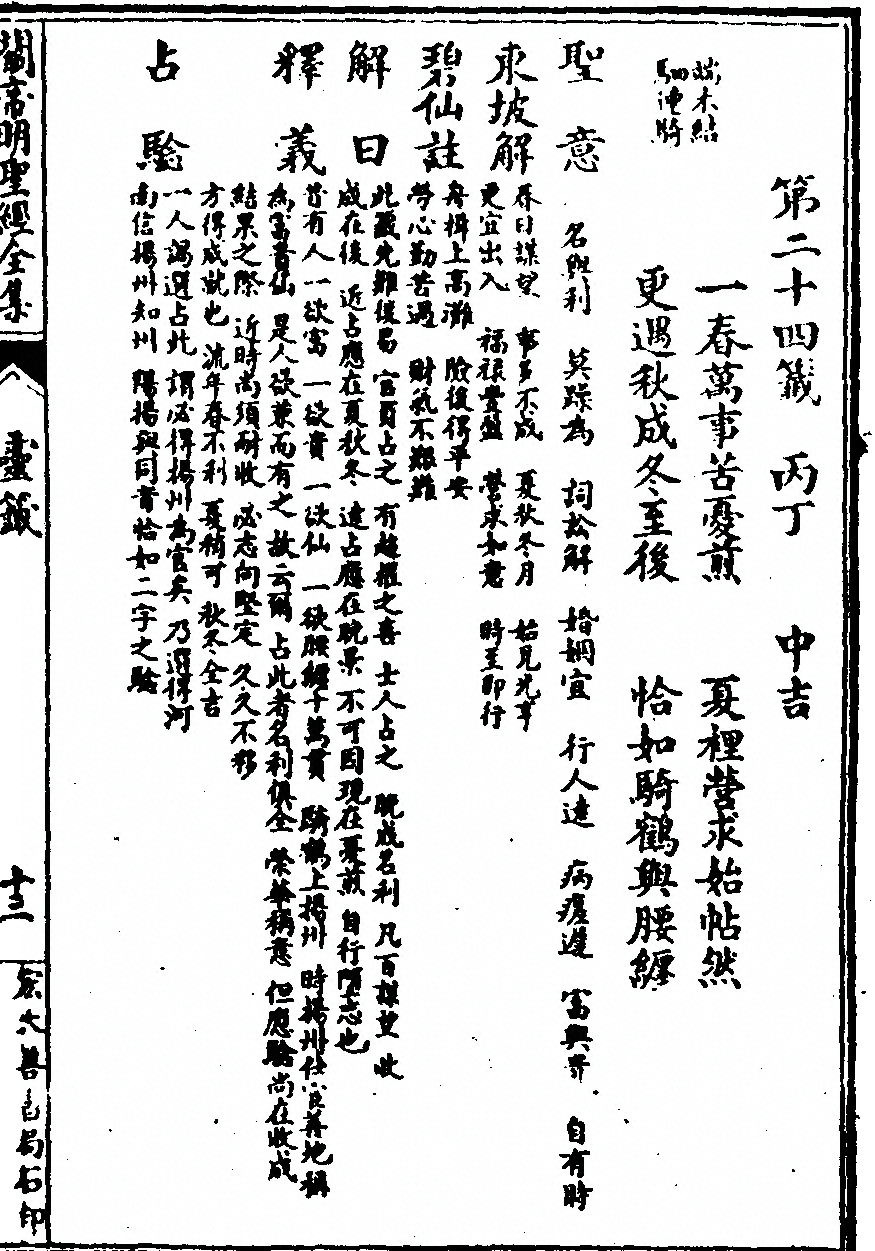 第二十四籤　丙丁　中吉
一春萬事苦憂煎　夏裡營求始帖然
更遇秋成冬至後　恰如騎鶴與腰纏
端木結
駟連騎
聖意
名與利　莫躁為　詞訟解　婚姻宜　行人遠　病瘥遲　富與貴　自有時
東坡解
春日謀望　事多不成　夏秋冬月　始見光亨
更宜出入　福祿豐盈　營求如意　時至即行
碧仙註
舟楫上高灘　險後得平安
勞心勤苦過　財氣不艱難
解曰
此籤先難後易　官員占之　有超擢之喜　士人占之　晚成名利　凡百謀望　收
成在後　近占應在夏秋冬　遠占應在晚景　不可因現在憂煎　自行隳志也
釋義
昔有人一欲富　一欲貴　一欲仙　一欲腰纏十萬貫　騎鶴上揚州　時揚州仕宦善地　稱
為富貴仙　是人欲兼而有之　故云爾　占此者名利俱全　榮華稱意　但應驗尚在收成
結果之際　近時尚須耐收　必志向堅定　久久不移
方得成就也　流年春不利　夏稍可　秋冬全吉
占驗
一人謁選占此　謂必得揚州為官矣　乃選得河
南信陽州知州　陽揚與同音恰如二字之驗
關帝明聖經全集
靈籤
十三
宏大善書局石印